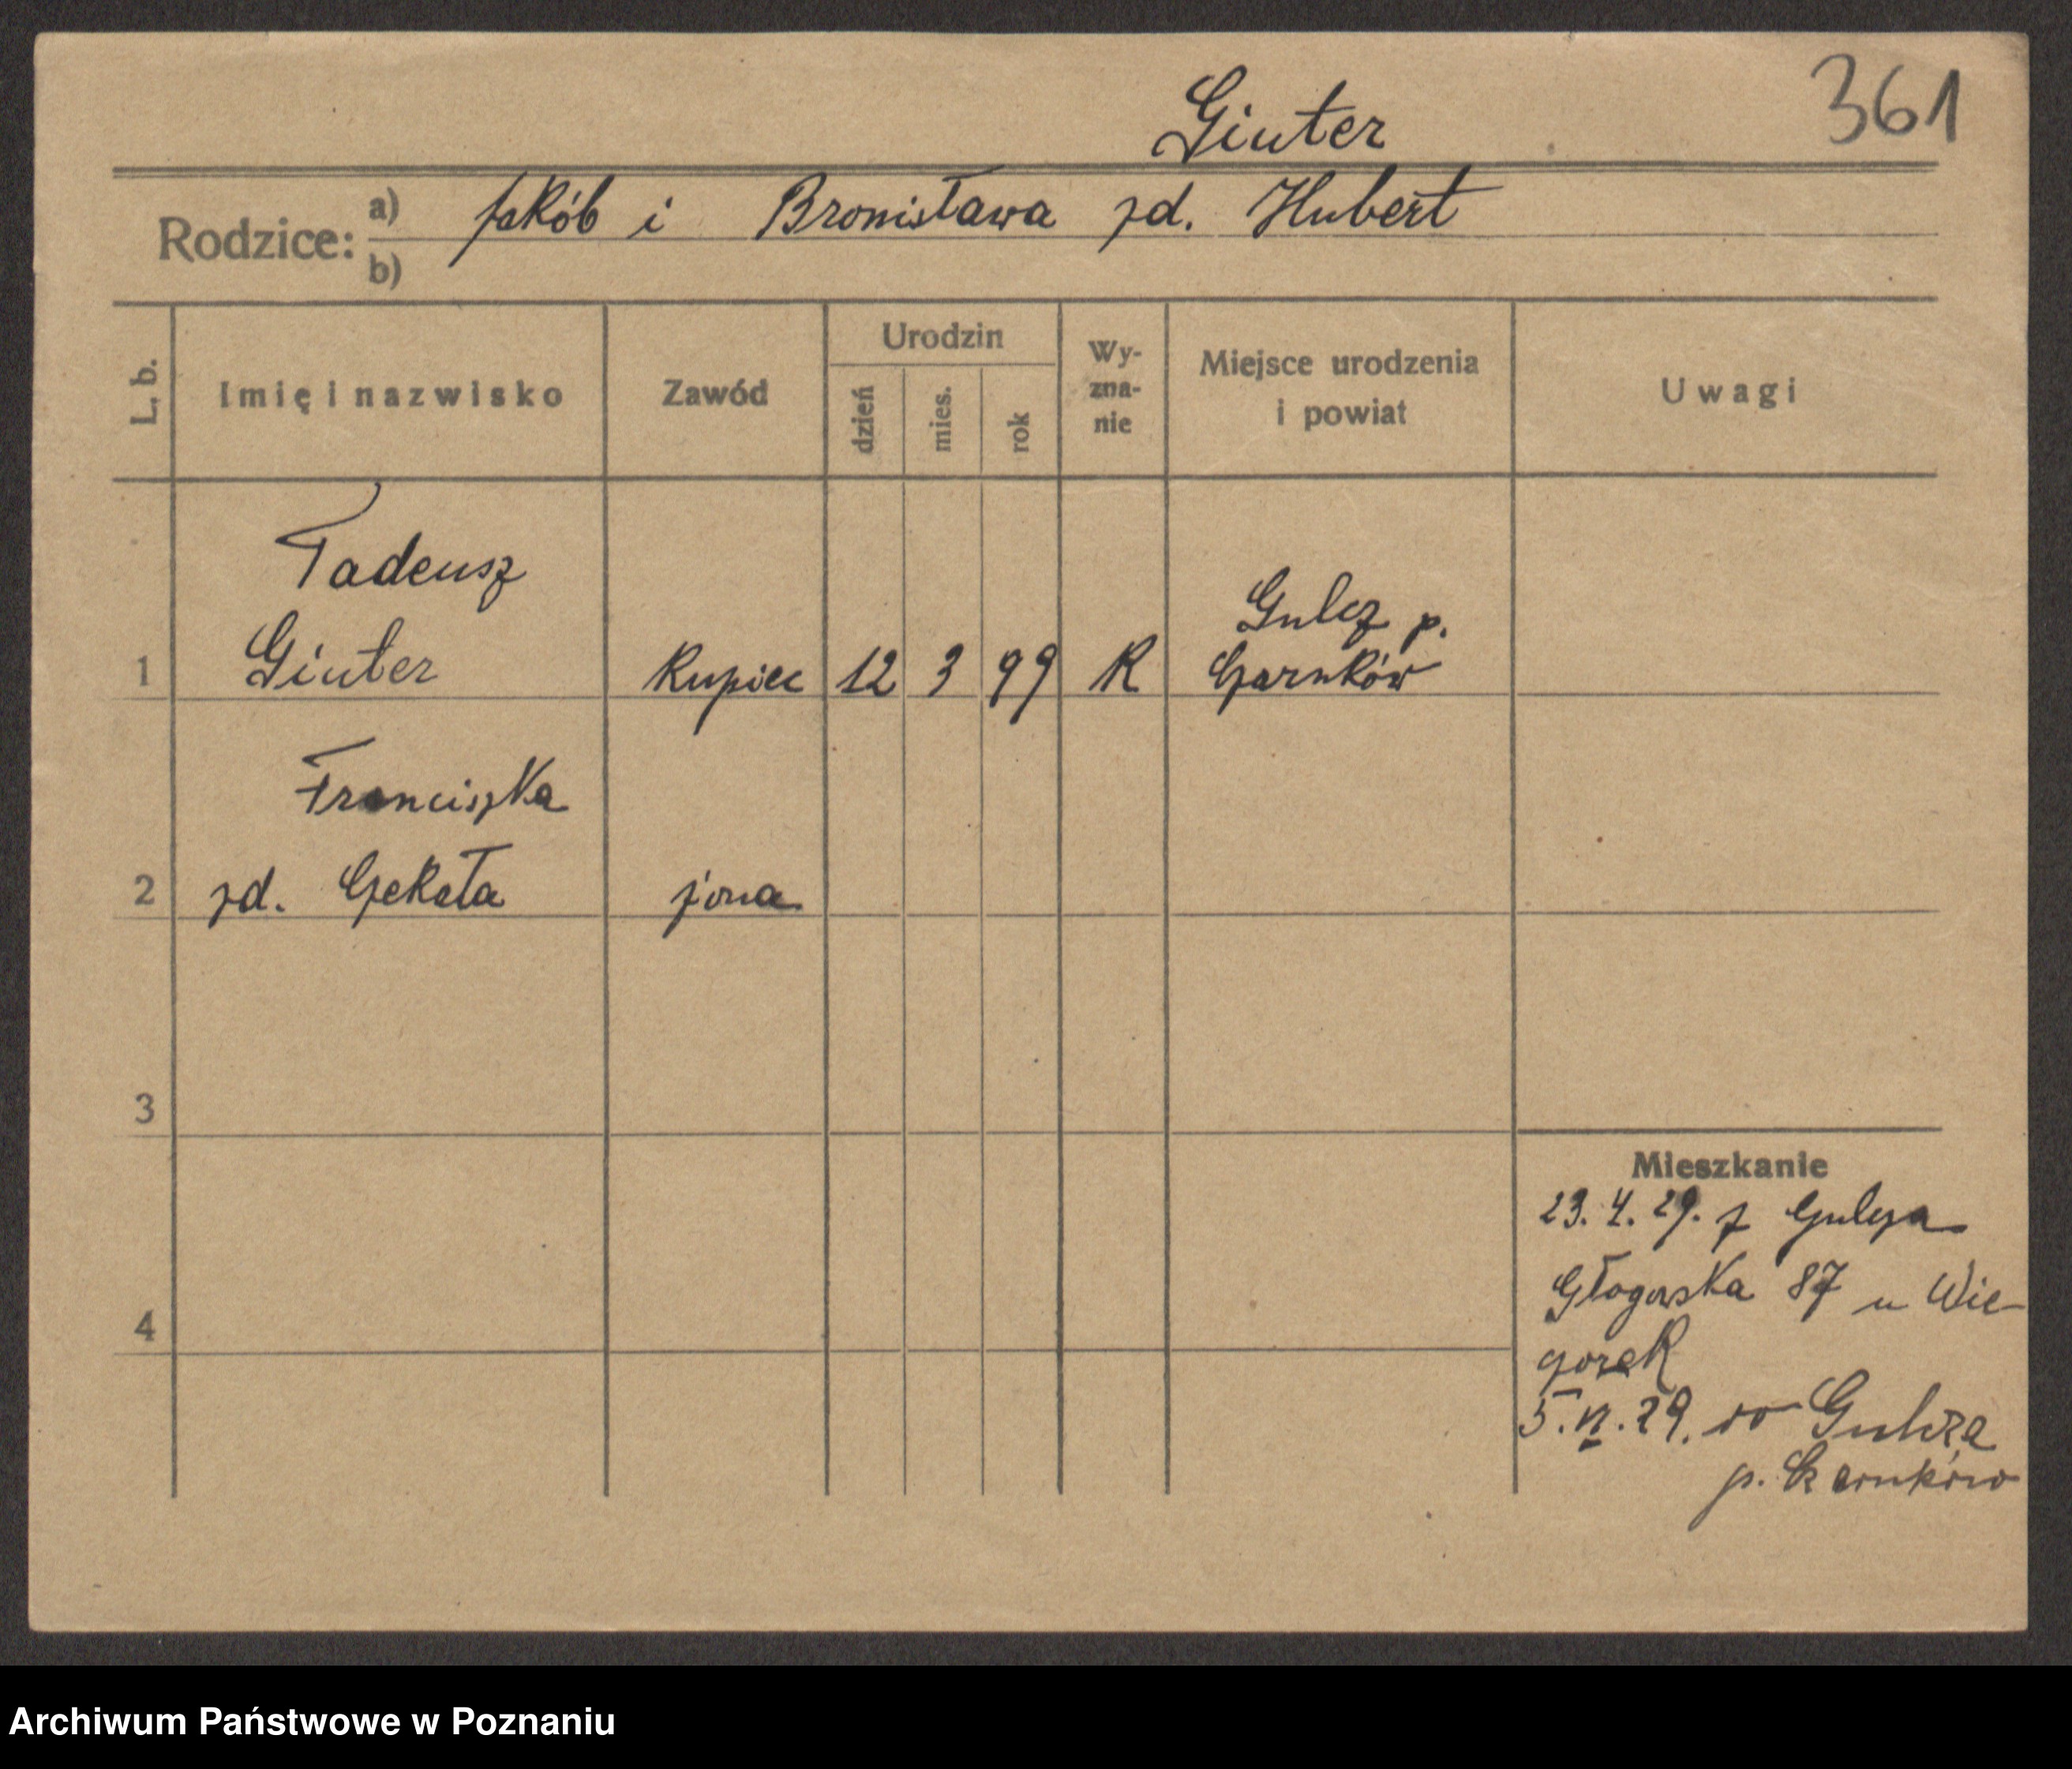 361
Giuter
Rodzice: a) Jakób i Bronisława zd. Hubert
b)
L. b.
Imię i nazwisko
Zawód
Urodzin
dzień
mies.
rok
Wy-
zna-
nie
Miejsce urodzenia
i powiat
Uwagi
Tadeusz
1 Giuter Kupiec 12 3 99 K Gulcz p.
Czarnków
Franciszka
2 zd. Czekała żona
3
4
Mieszkanie
23. 4. 29. z Gulcza
Głogowska 87 u Wie-
czorek
5. VI. 29. do Gulcza
p. Czarnków
Archiwum Państwowe w Poznaniu